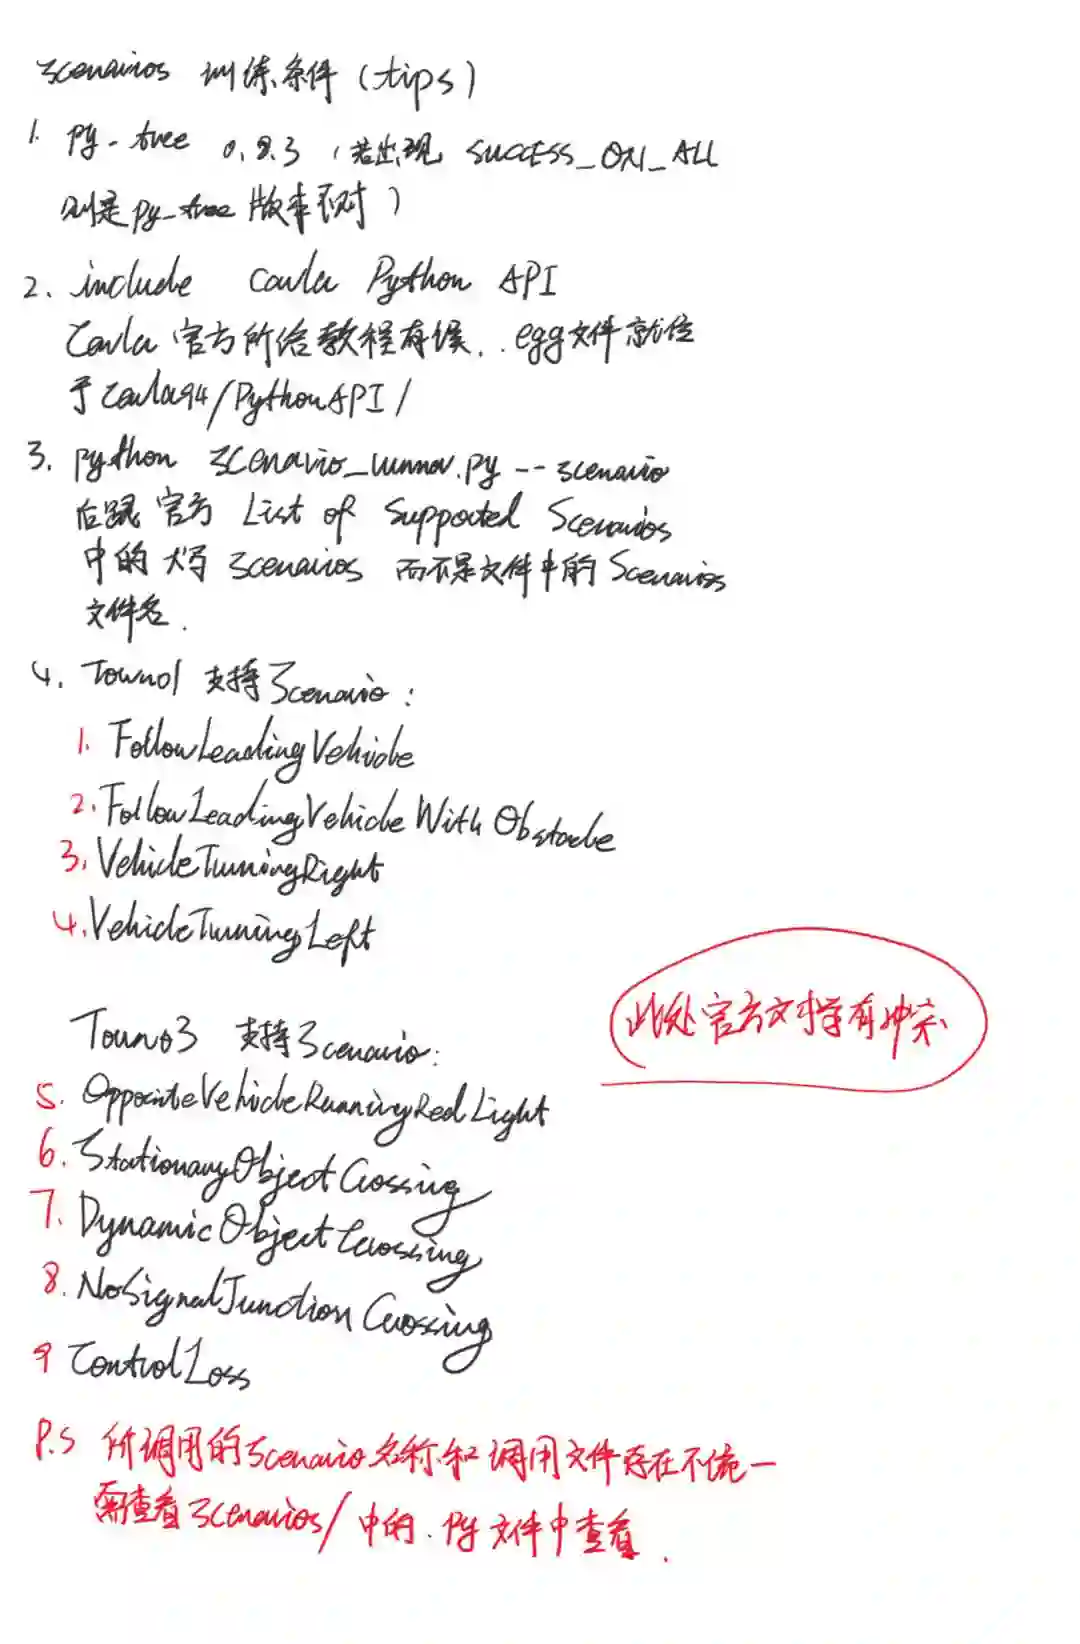 Scenarios 训练条件 (tips)
1. py-tree 0.8.3 (若出现 SUCCESS_ON_ALL
则是py_tree版本不对)
2. include Carla Python API
Carla官方所给教程有误, .egg文件就位
于Carla94/PythonAPI/
3. python scenario_runner.py --scenario
后跟官方 List of Supported Scenarios
中的大写 Scenarios 而不是文件中的Scenarios
文件名.
4. Town01 支持Scenario:
1. FollowLeadingVehicle
2. FollowLeadingVehicleWithObstacle
3. VehicleTurningRight
4. VehicleTurningLeft
此处官方文档有冲突
Town03 支持Scenario:
5. OppositeVehicleRunningRedLight
6. StationaryObjectCrossing
7. DynamicObjectCrossing
8. NoSignalJunctionCrossing
9 ControlLoss
P.S 所调用的Scenario名称和调用文件存在不统一
需查看Scenarios/中的.py文件中查看.